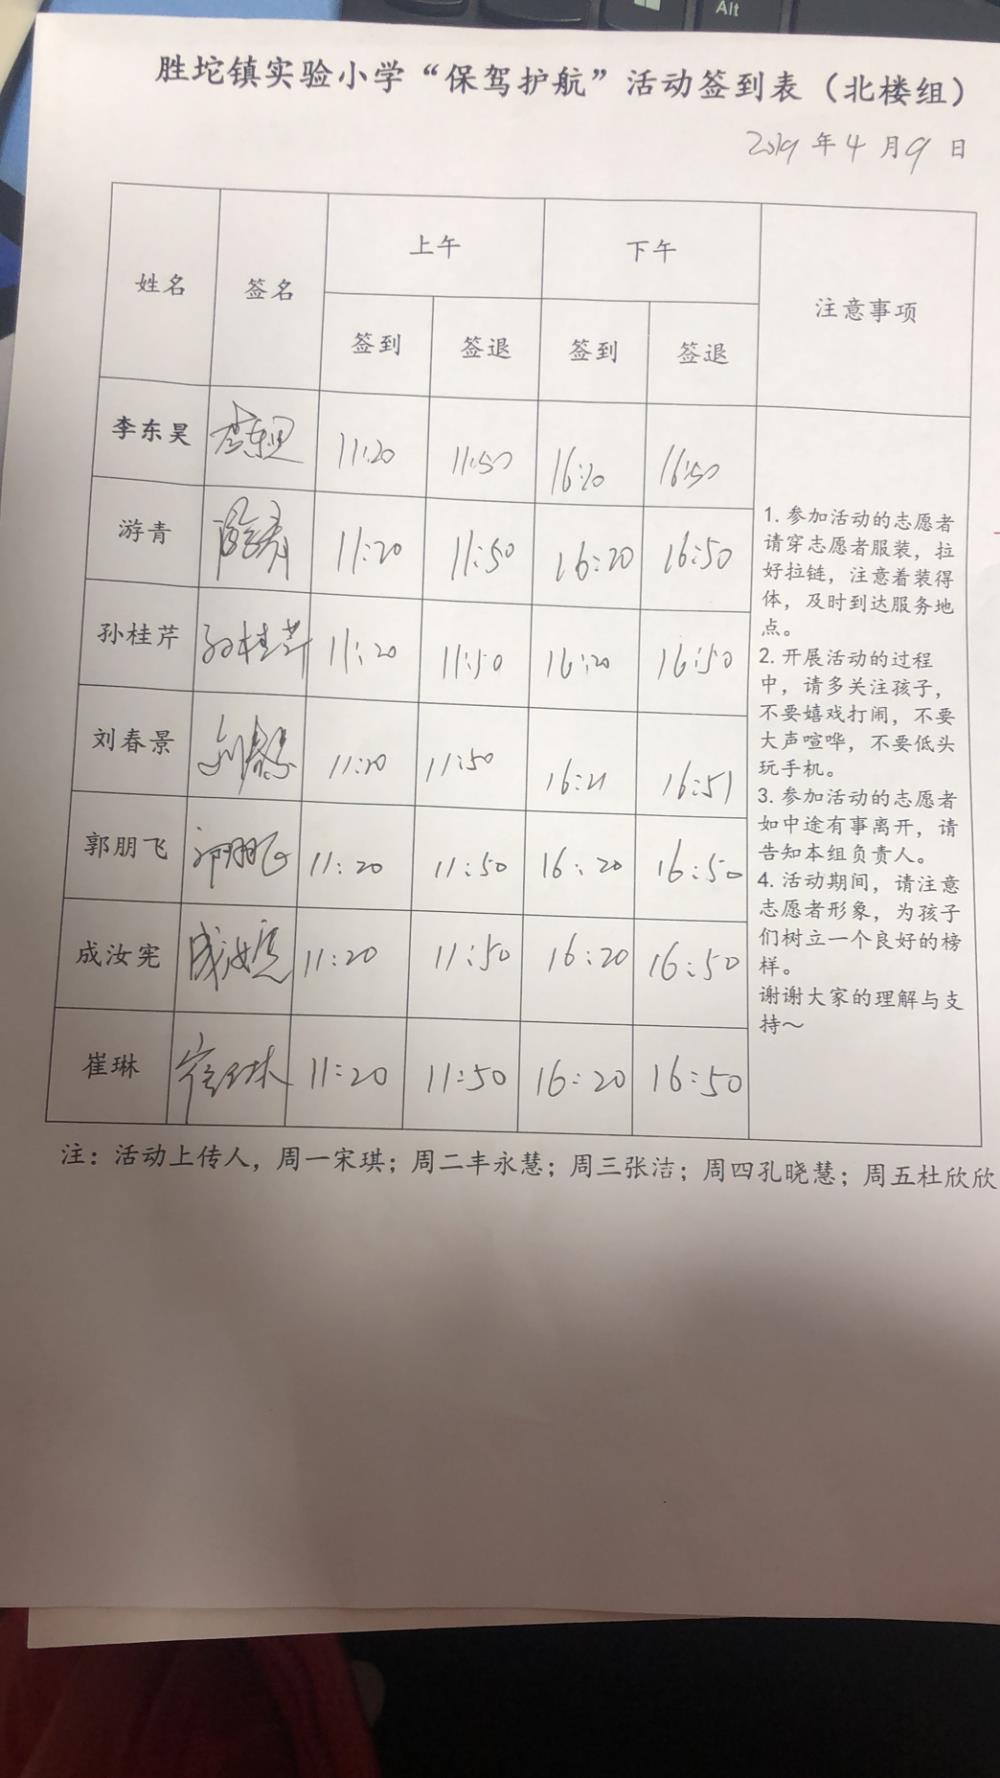 Alt
胜坨镇实验小学“保驾护航”活动签到表（北楼组）
2019 年 4 月 9 日
姓名 签名 上午 下午 注意事项
签到 签退 签到 签退
李东昊 李东昊 11:20 11:50 16:20 16:50
游青 游青 11:20 11:50 16:20 16:50
孙桂芹 孙桂芹 11:20 11:50 16:20 16:50
刘春景 刘春景 11:20 11:50 16:21 16:51
郭朋飞 郭朋飞 11:20 11:50 16:20 16:50
成汝宪 成汝宪 11:20 11:50 16:20 16:50
崔琳 崔琳 11:20 11:50 16:20 16:50
1. 参加活动的志愿者
请穿志愿者服装，拉
好拉链，注意着装得
体，及时到达服务地
点。
2. 开展活动的过程
中，请多关注孩子，
不要嬉戏打闹，不要
大声喧哗，不要低头
玩手机。
3. 参加活动的志愿者
如中途有事离开，请
告知本组负责人。
4. 活动期间，请注意
志愿者形象，为孩子
们树立一个良好的榜
样。
谢谢大家的理解与支
持～
注：活动上传人，周一宋琪；周二丰永慧；周三张洁；周四孔晓慧；周五杜欣欣